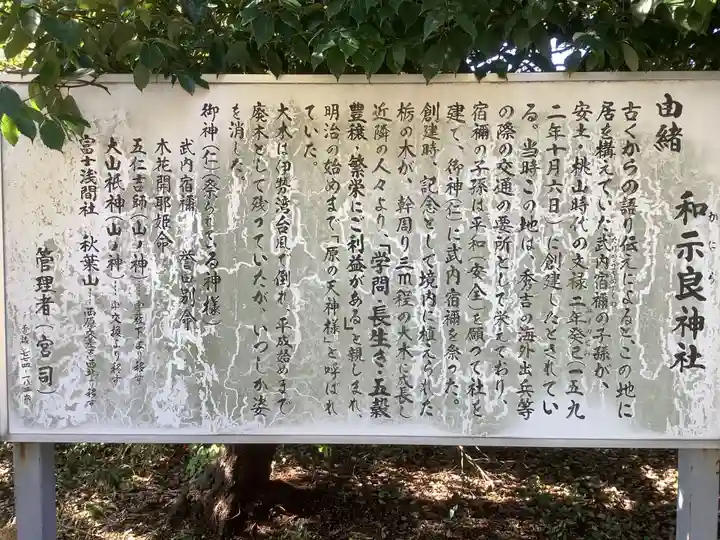 和示良神社
かにら
由緒
古くからの語り伝えによると、この地に
居を構えていた武内宿禰の子孫が、
安土・桃山時代の文禄二年癸巳(一五九
二年十月六日)に創建したとされてい
る。当時この地は、秀吉の海外出兵等
の際の交通の要所として栄えており、
宿禰の子孫は平和(安全)を願って社を
建て、御神(仁)に武内宿禰を祭った。
創建時、記念として境内に植えられた
栃の木が、幹周り三m程の大木に成長し
近隣の人々より、「学問・長生き・五穀
豊穣・繁栄にご利益がある」と親しまれ、
明治の始めまで「原の天神様」と呼ばれ
ていた。
大木は伊勢湾台風で倒れ、平成始めまで
廃木として残っていたが、いつしか姿
を消した。
御神(仁)祭られている神様)
武内宿禰 誉田別命
木花開耶姫命
五仁吉師(山ノ神)……字坂下より移す
大山祇神(山ノ神)……字交換より移す
富士浅間社 秋葉山……西原
管理者(宮司)